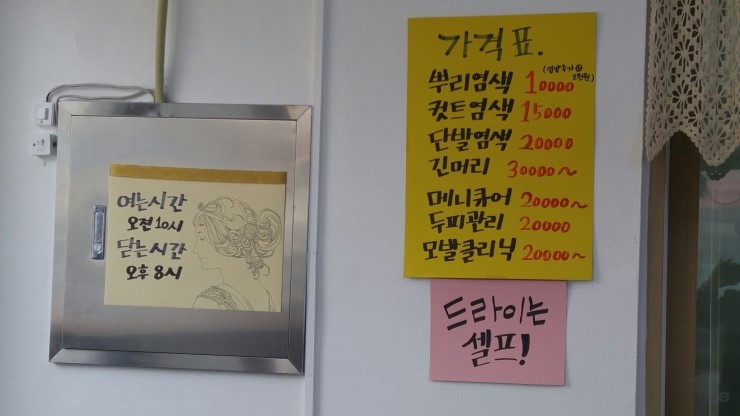 여는시간
오전 10시
닫는시간
오후 8시
가격표.
뿌리염색 10000 (염발추가 @ 2천원)
컷트염색 15000
단발염색 20000
긴머리 30000~
메니큐어 20000~
두피관리 20000
모발클리닉 20000~
드라이는
셀프!